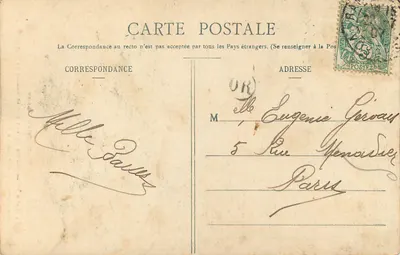 CARTE POSTALE
La Correspondance au recto n'est pas acceptée par tous les Pays étrangers. (Se renseigner à la Pos
CORRESPONDANCE
ADRESSE
OR
Mlle Eugenie Gervais
5 Rue
Paris
Mille